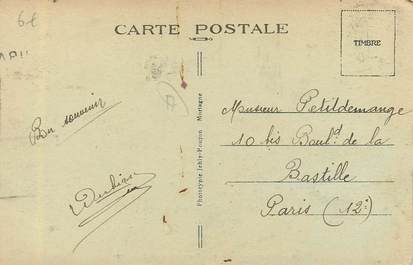 6€
CARTE POSTALE
TIMBRE
Bon souvenir
Phototypie Jehly-Poupin Mortagne
Monsieur Petildemange
10 bis Boul.d de la
Bastille
Paris (12e)